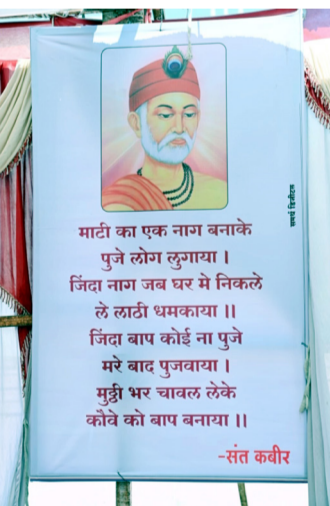 माटी का एक नाग बनाके
पुजे लोग लुगाया ।
जिंदा नाग जब घर मे निकले
ले लाठी धमकाया ।।
जिंदा बाप कोई ना पुजे
मरे बाद पुजवाया ।
मुठ्ठी भर चावल लेके
कौवे को बाप बनाया ।।
-संत कबीर
समर्थ डिजीटल